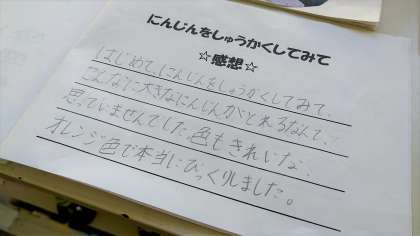 にんじんをしゅうかくしてみて
☆感想☆
はじめて、にんじんをしゅうかくしてみて、
こんなに大きなにんじんがとれるなんて、
思っていませんでした。色もきれいな、
オレンジ色で本当にびっくりしました。